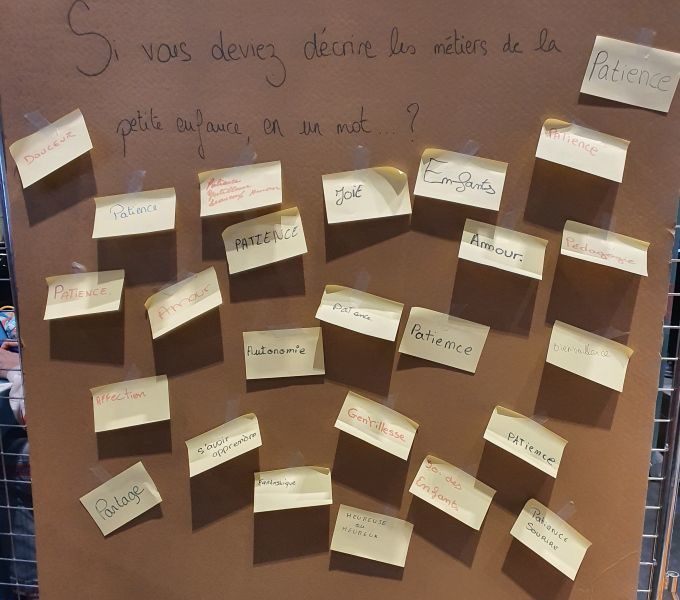 Si vous deviez décrire les métiers de la
petite enfance, en un mot... ?
Patience
DOUCEUR
PATIENCE
Patience
Patience
JOIE
Enfants
PATIENCE
Amour.
Pédagogie
PATIENCE.
AMOUR
Patience
Patience
Autonomie
Bienveillance
Affection
s'avoir
apprendre
Gentillesse
PATIENCE
Partage
Fantastique
HEUREUSE
ou
HEUREUX
des
Enfants
PATIENCE
SOURIRE